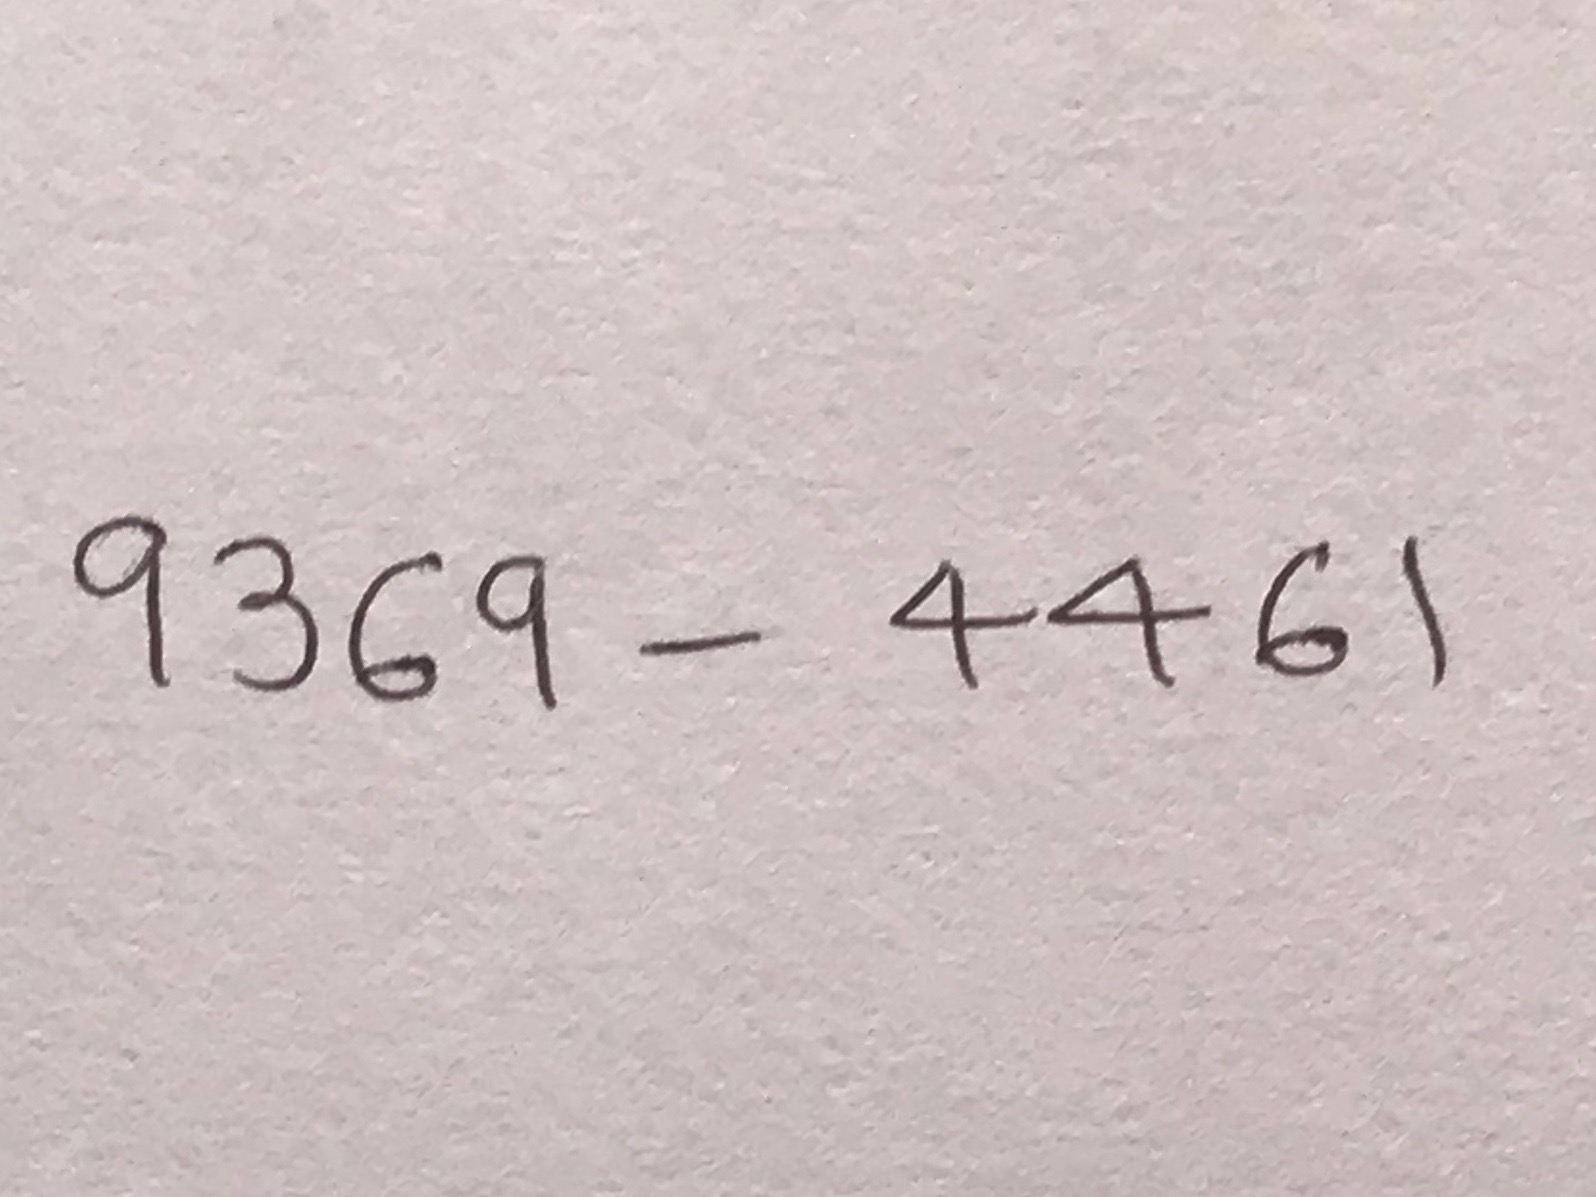 9369 - 4461